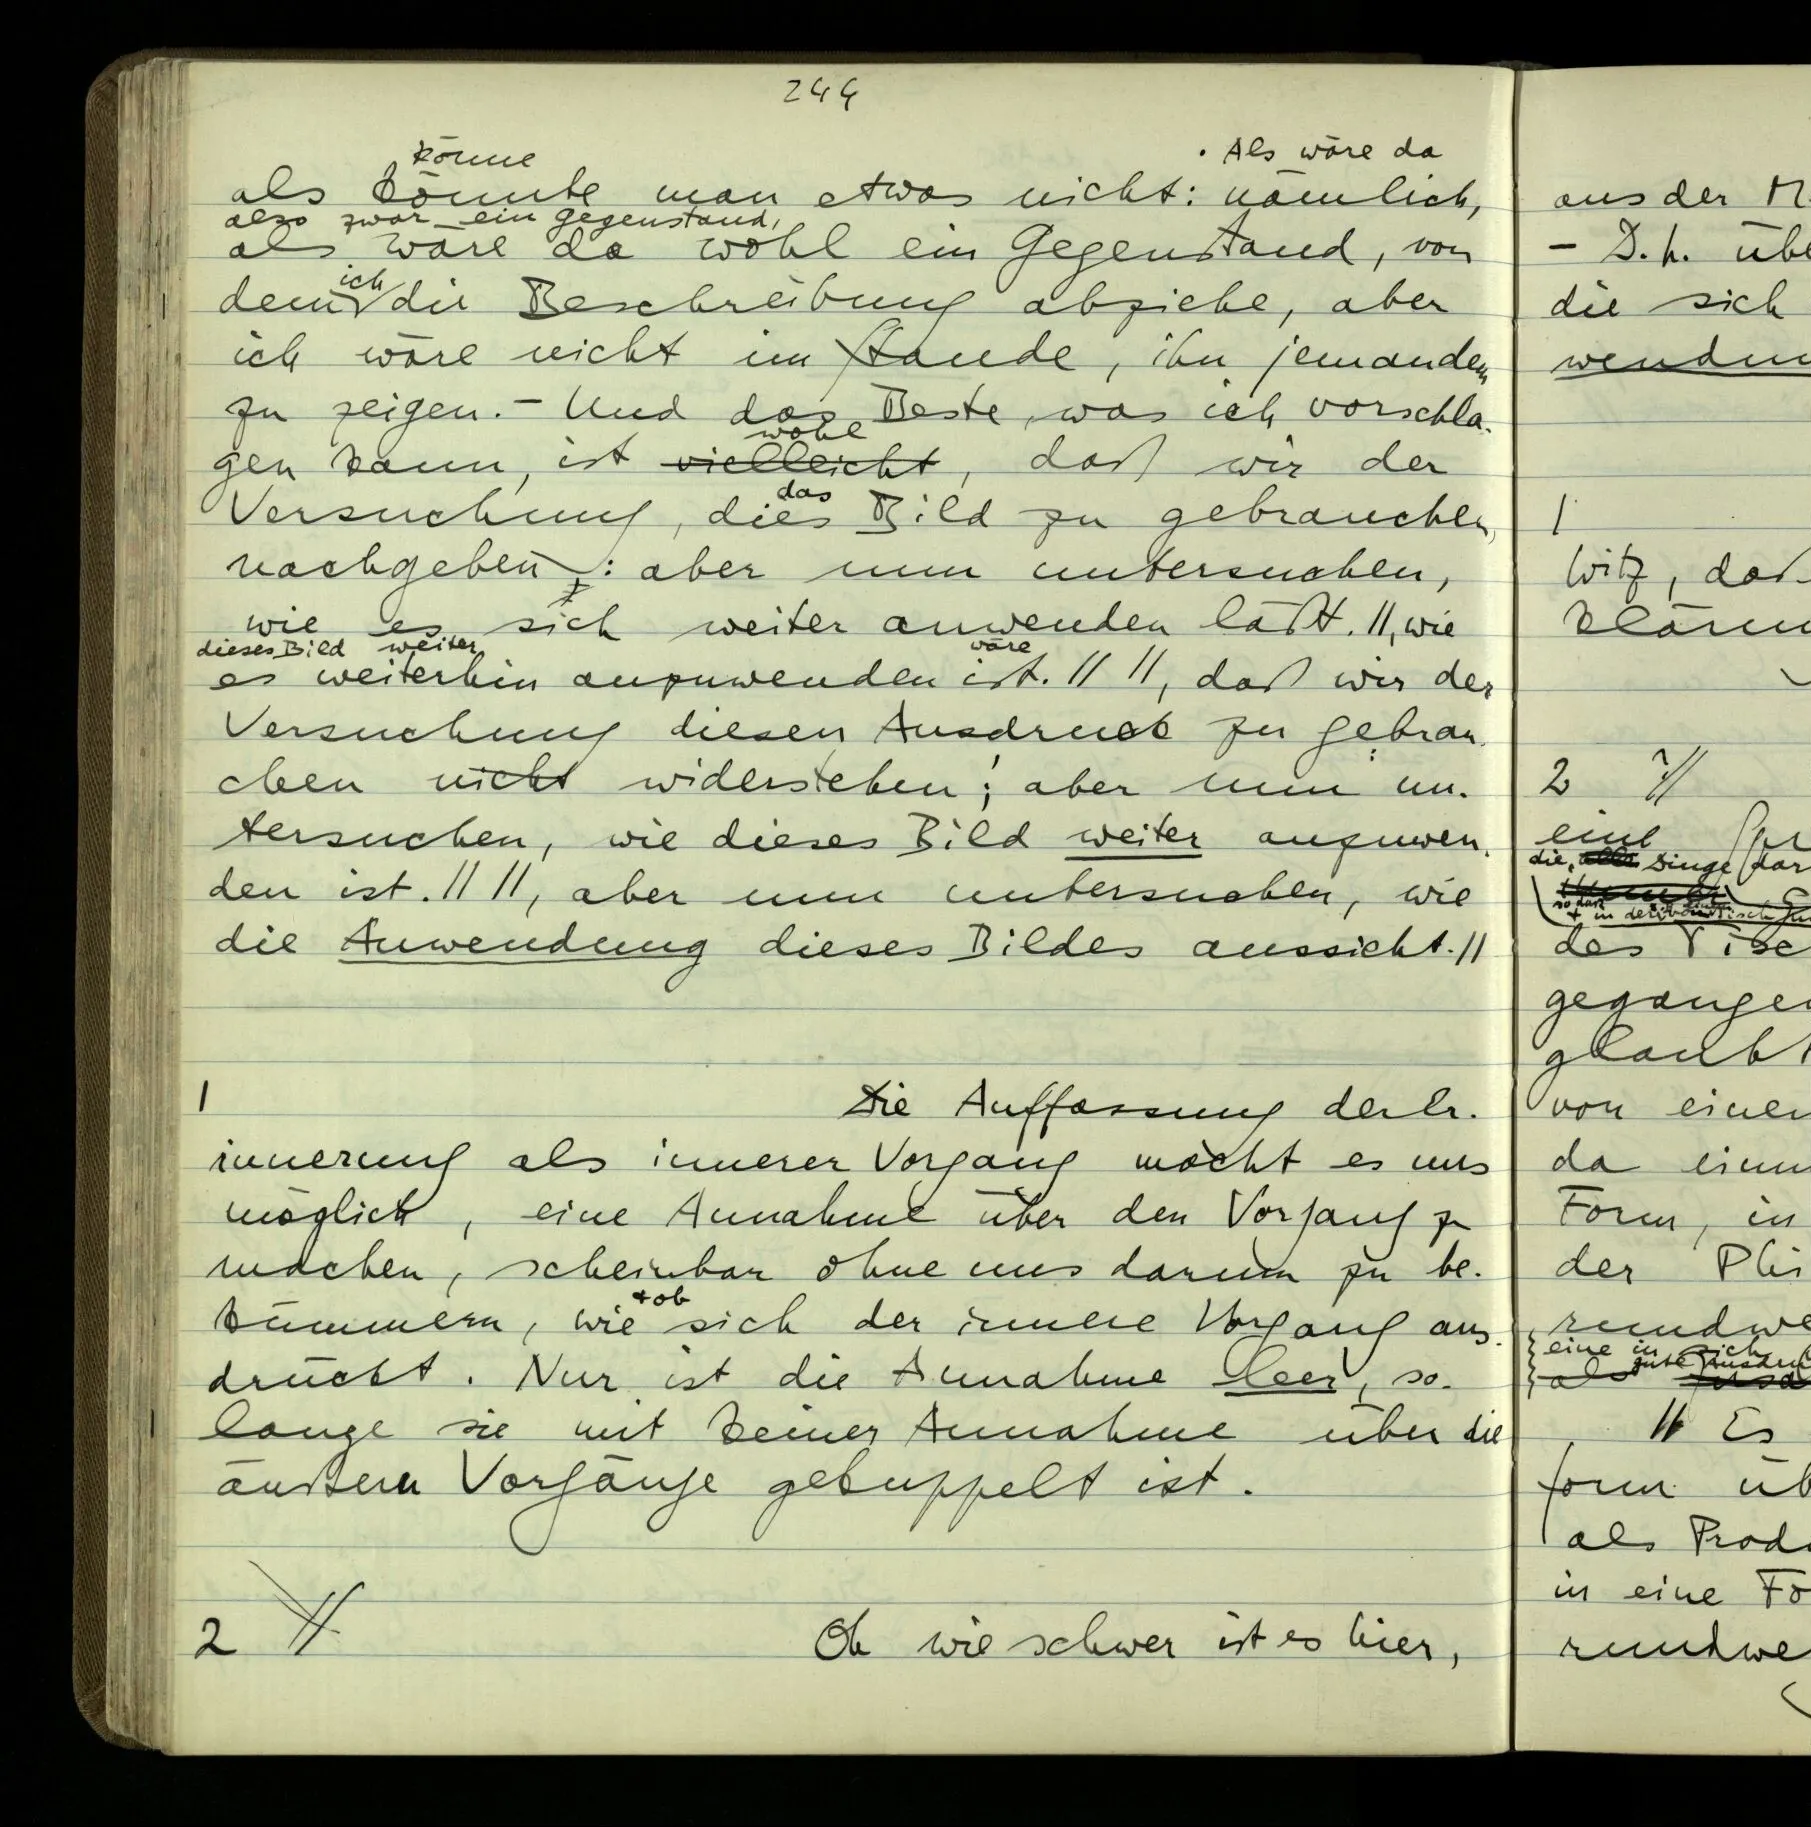 244
könne
· Als wäre da
als könnte man etwas nicht: nämlich,
also zwar ein Gegenstand,
als wäre da wohl ein Gegenstand, von
ich
dem die Beschreibung abziehe, aber
ich wäre nicht im Stande, ihn jemandem
zu zeigen. – Und das Beste, was ich vorschla-
wohl
gen kann, ist vielleicht, daß wir der
das
Versuchung, dies Bild zu gebrauchen,
nachgeben: aber nun untersuchen,
wie es sich weiter anwenden läßt. //, wie
dieses Bild weiter
wäre
es weiterhin anzuwenden ist. // //, daß wir der
Versuchung diesen Ausdruck zu gebrau-
chen nicht widerstehen; aber nun un-
tersuchen, wie dieses Bild weiter anzuwen-
den ist. // //, aber nun untersuchen, wie
die Anwendung dieses Bildes aussieht. //
1
Die Auffassung der Er-
innerung als innerer Vorgang macht es uns
möglich, eine Annahme über den Vorgang zu
machen, scheinbar ohne uns darum zu be-
+ ob
kümmern, wie sich der innere Vorgang aus-
drückt. Nur ist die Annahme leer, so-
lange sie mit keiner Annahme über die
äußern Vorgänge gekuppelt ist.
2 //
Oh wie schwer ist es hier,
aus der M
– D.h. übe
die sich
wenden
1
Witz, daß
klären
2 //
eine
die, alle Dinge dar
des Tisc
gegangen
glaubt
von einer
da einm
Form, in
der Phi
rundwe
eine in sich
gute Ausdru
als
// Es
form üb
als Prod
in eine Fo
rundwe